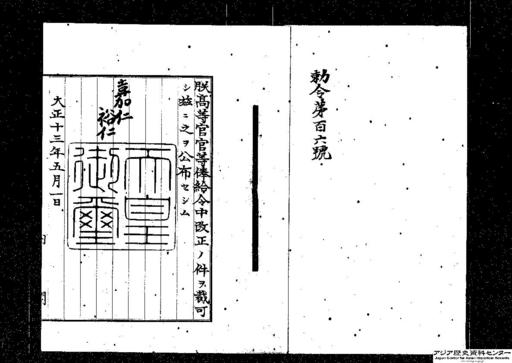 勅令第百六號
朕高等官官等俸給令中改正ノ件ヲ裁可
シ茲ニ之ヲ公布セシム
嘉仁
裕仁
天皇
御璽
大正十三年五月一日
アジア歴史資料センター
Japan Center for Asian Historical Records